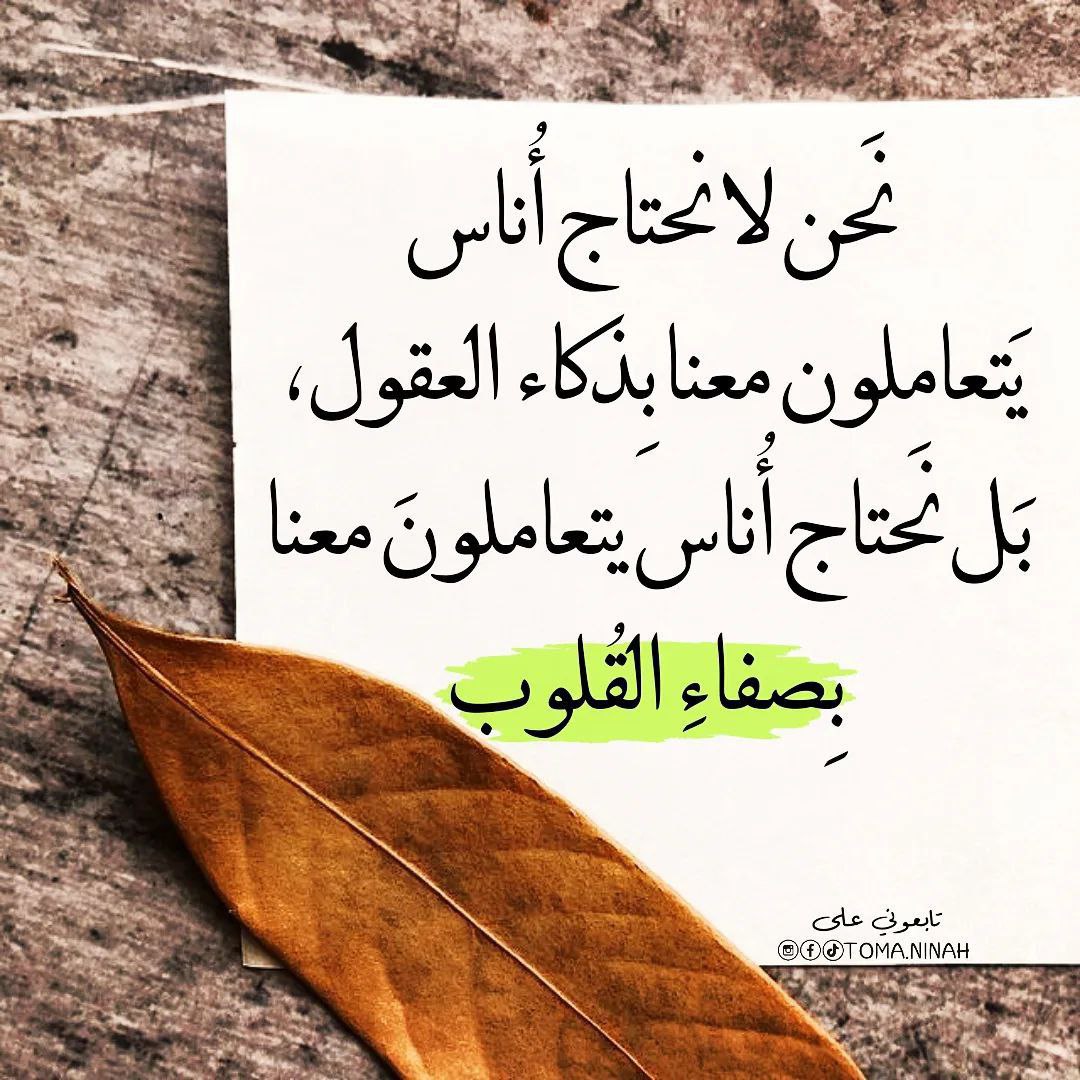 نَحن لا نحتاج أُناس
يَتعاملون معنا بِذَكاء العقول،
بَل نَحتاج أُناس يتعاملونَ معنا
بِصفاءِ القُلوب
تابعوني على
TOMA.NINAH